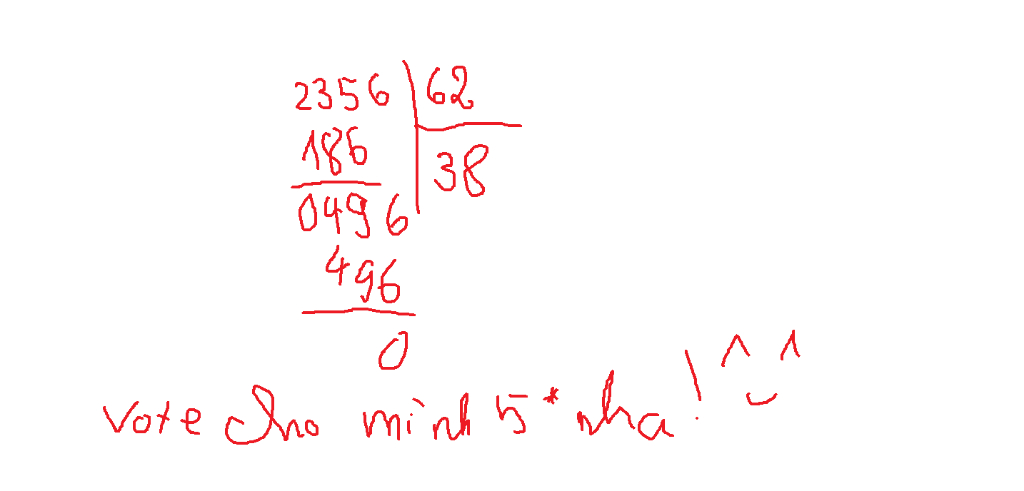 2356 62
186 38
0496
496
0
vote cho mình 5* nha! ^‿^